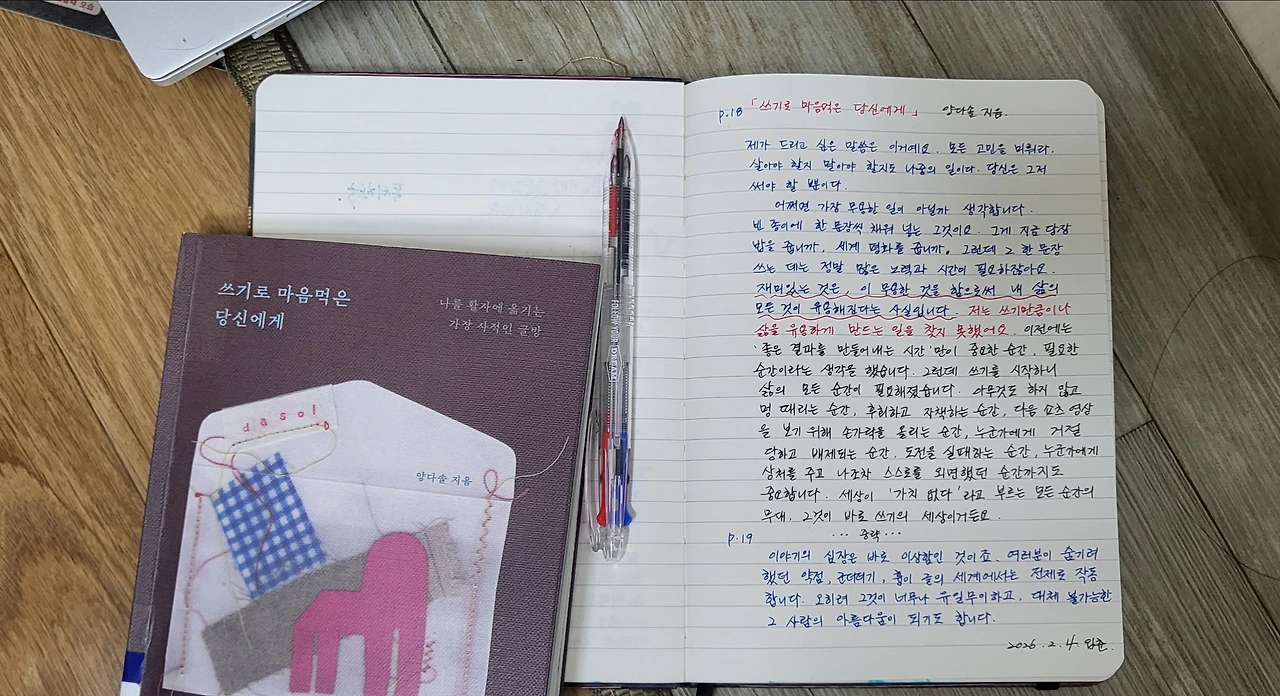 쓰기로 마음먹은
당신에게
나를 활자에 옮기는
가장 사적인 글방
dasol
양다솔 지음
FOLLOW YOUR DREAMS
p.18 「쓰기로 마음먹은 당신에게」 양다솔 지음.
제가 드리고 싶은 말씀은 이거예요. 모든 고민을 미뤄라.
살아야 할지 말아야 할지도 나중의 일이다. 당신은 그저
써야 할 뿐이다.
어쩌면 가장 무용한 일이 아닐까 생각합니다.
빈 종이에 한 문장씩 채워 넣는 그것이요. 그게 지금 당장
밥을 줍니까, 세계 평화를 줍니까. 그런데 그 한 문장
쓰는 데는 정말 많은 노력과 시간이 필요하잖아요.
재미있는 것은, 이 무용한 것을 함으로써 내 삶의
모든 것이 유용해진다는 사실입니다. 저는 쓰기만큼이나
삶을 유용하게 만드는 일을 찾지 못했어요. 이전에는
'좋은 결과를 만들어내는 시간'만이 중요한 순간, 필요한
순간이라는 생각을 했습니다. 그런데 쓰기를 시작하니
삶의 모든 순간이 필요해졌습니다. 아무것도 하지 않고
멍 때리는 순간, 후회하고 자책하는 순간, 다음 쇼츠 영상
을 보기 위해 손가락을 올리는 순간, 누군가에게 거절
당하고 배제되는 순간, 도전을 실패하는 순간, 누군가에게
상처를 주고 나조차 스스로를 외면했던 순간까지도
중요합니다. 세상이 '가치 없다'라고 부르는 모든 순간의
무대, 그것이 바로 쓰기의 세상이거든요.
... 중략 ...
p.19
이야기의 심장은 바로 이상함인 것이죠. 여러분이 숨기려
했던 약점, 군더더기, 흠이 글의 세계에서는 전제로 작동
합니다. 오히려 그것이 너무나 유일무이하고, 대체 불가능한
그 사람의 아름다움이 되기도 합니다.
2026. 2. 4. 입춘.